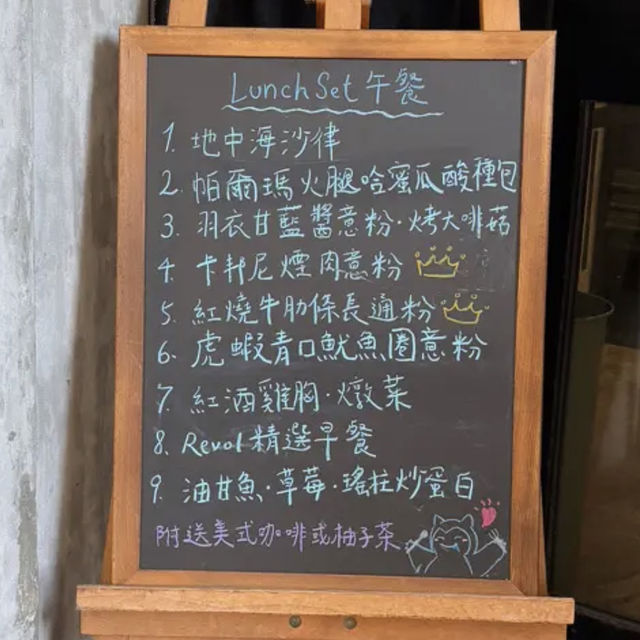 Lunch Set 午餐
1. 地中海沙律
2. 帕爾瑪火腿哈蜜瓜酸種包
3. 羽衣甘藍醬意粉·烤大啡菇
4. 卡邦尼煙肉意粉
5. 紅燒牛肋條長通粉
6. 虎蝦青口魷魚圈意粉
7. 紅酒雞胸·燉菜
8. Revol 精選早餐
9. 油甘魚·草莓·瑤柱炒蛋白
附送美式咖啡或柚子茶